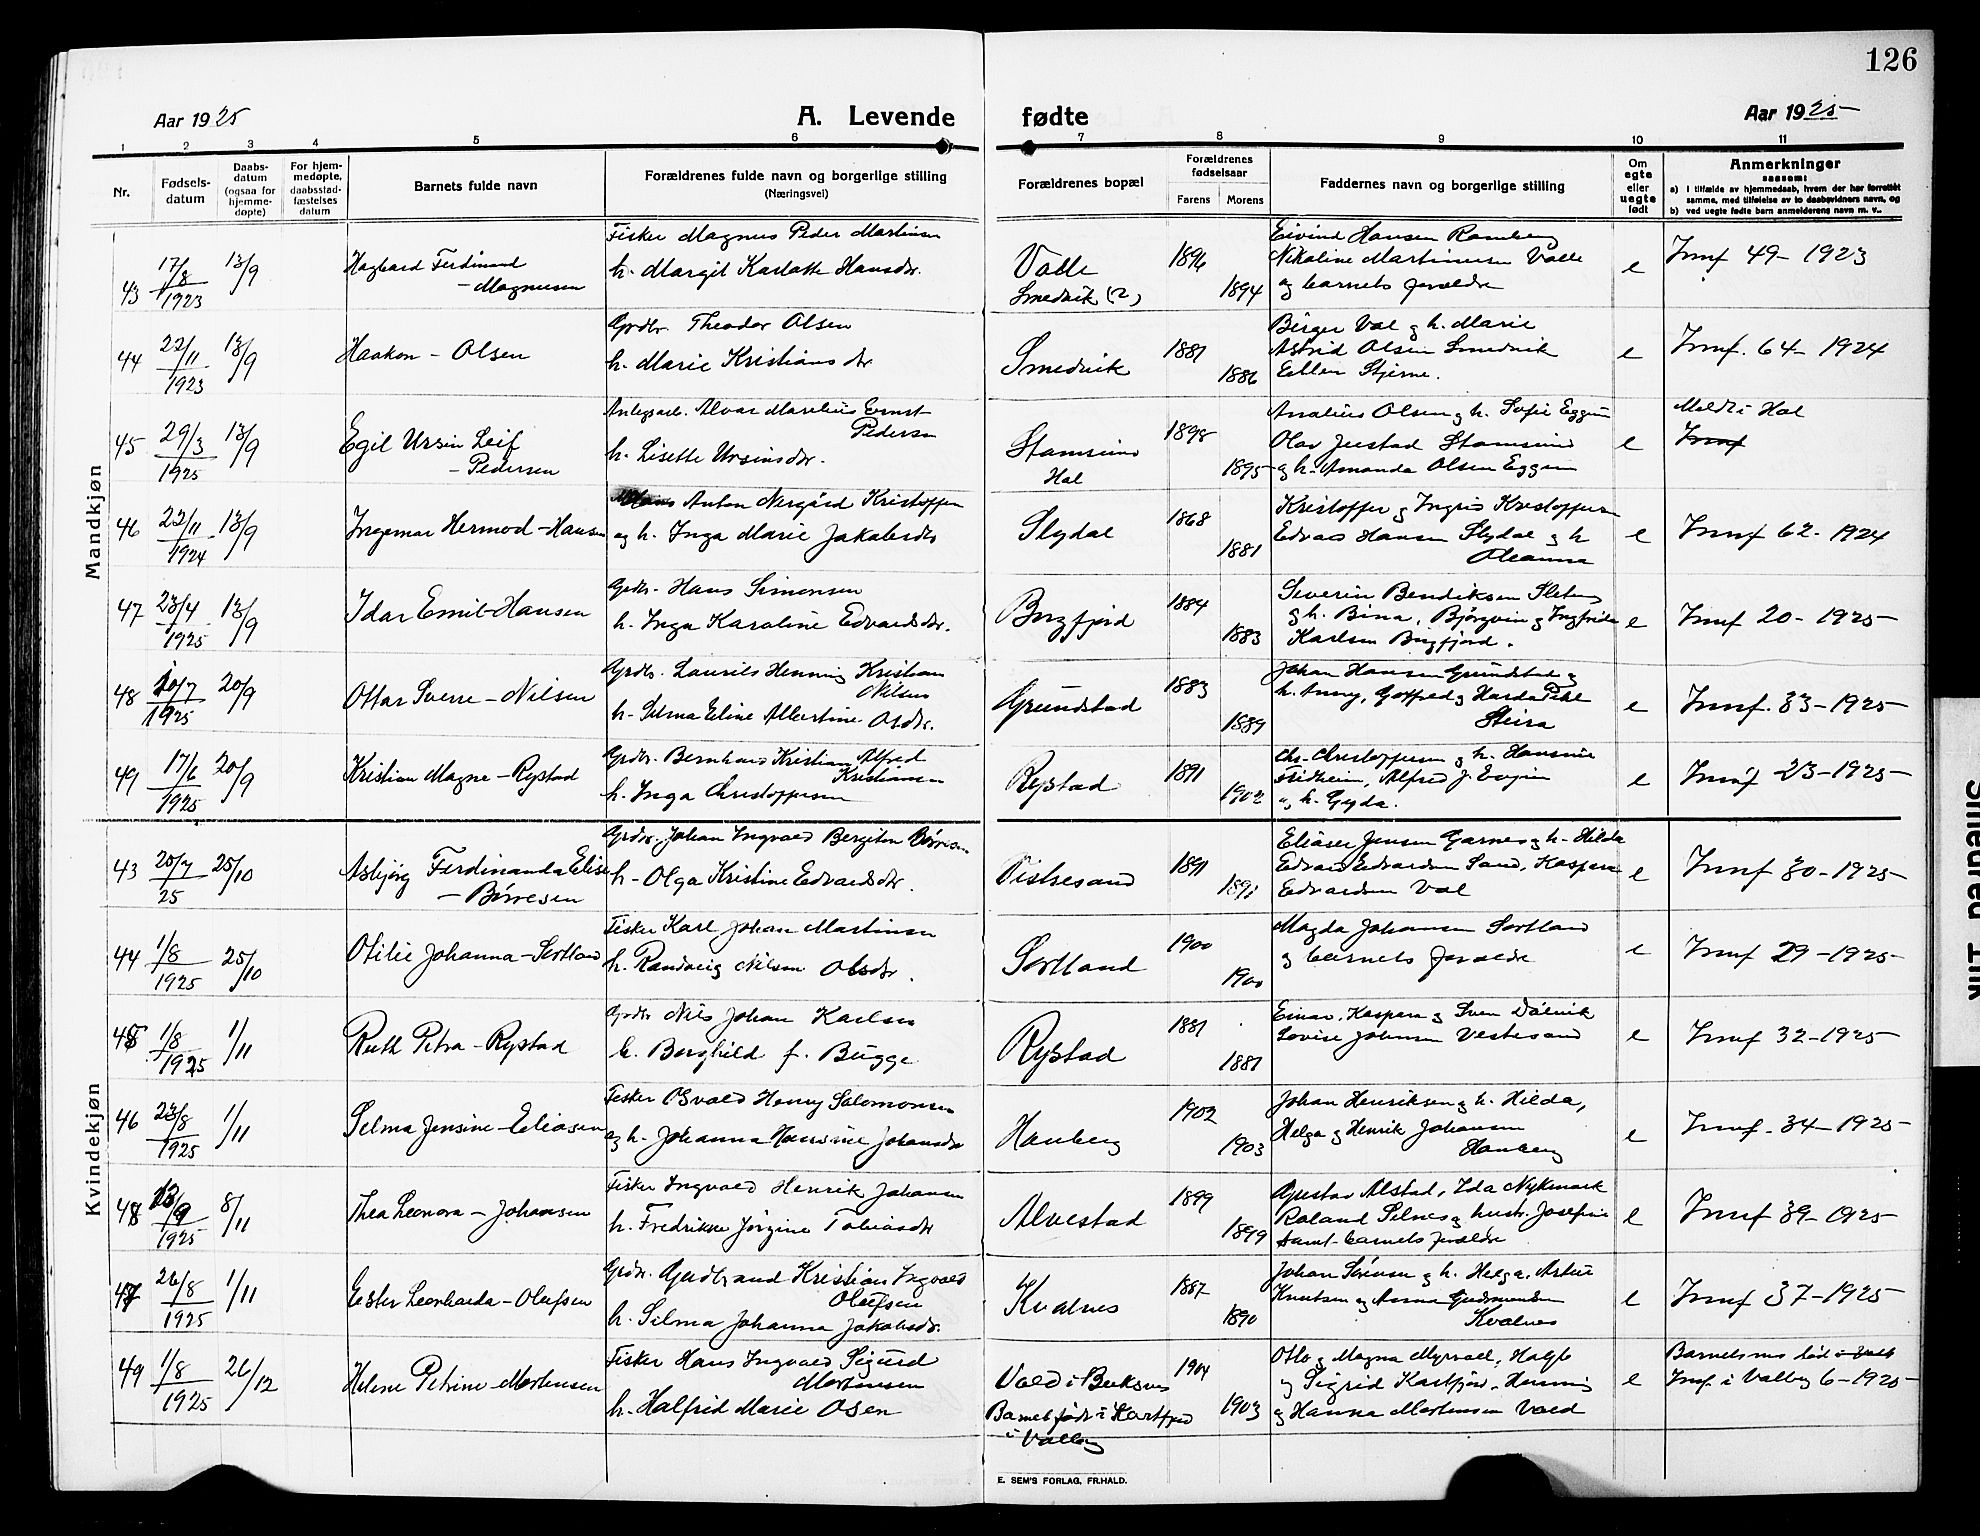 126
Aar 1925
A. Levende fødte
Aar 1925
1 2 3 4 5 6 7 8 9 10 11
Nr.
Fødsels-
datum
Daabs-
datum
(ogsaa for
hjemme-
døpte)
For hjem-
medøpte,
daabsstad-
fæstelses
datum
Barnets fulde navn
Forældrenes fulde navn og borgerlige stilling
(Næringsvei)
Forældrenes bopæl
Forældrenes
fødselsaar
Farens Morens
Faddernes navn og borgerlige stilling
Om
egte
eller
uegte
født
Anmerkninger
saasom:
a) i tilfælde av hjemmedaab, hvem der har forrettet
samme, med tilføielse av to daabsvidners navn, og
b) ved uegte fødte barn anmelderens navn m. v..
Mandkjøn
43 17/8 1923 13/9
Hagbard Ferdinand
- Magnusen
Fisker Magnus Peder Martinsen
h. Margit Karlotte Hansdr.
Valle
Smedvik (2)
1896 1894
Eivind Hansen Ramberg
Nikoline Martinusen Valle
og barnets forældre
e
Innf 49 - 1923
44 22/11 1923 13/9
Haakon - Olsen
Grdbr. Theodor Olsen
h. Marie Kristiansdr
Smedvik
1881 1886
Birger Val og h. Marie
Astrid Olsen Smedvik
Ellen Stjerne.
e
Innf. 64 - 1924
45 29/3 1925 13/9
Egil Ursin Leif
- Pedersen
Anlegsarb. Alvar Marelius Ernst
Pedersen
h. Lisette Ursinsdr.
Stamsund
Hol
1898 1895
Analius Olsen og h. Sofie Eggum
Olav Justad Stamsund
og h. Amanda Olsen Eggum
e
Meldt i Hol
Innf
46 22/11 1924 13/9
Ingemar Hermod - Hansen
Hans Anton Nergård Kristoffersen
og h. Inga Marie Jakobsdr
Slydal
1868 1881
Kristoffer og Ingris Kristoffersen
Edvard Hansen Slydal og h
Oleanna
e
Innf 62 - 1924
47 23/4 1925 13/9
Idar Emil - Hansen
Grdbr. Hans Simonsen
h. Inga Karoline Edvardsdr.
Borgfjord
1884 1883
Severin Bendiksen Sletteng
og h. Bina, Bjørgvin og Ingfrida
Karlsen Borgfjord.
e
Innf 20 - 1925
48 20/7 1925 20/9
Ottar Sverre - Nilsen
Grdbr. Laurits Henning Kristian
Nilsen
h. Selma Eline Albertine Olsdr.
Grundstad
1883 1889
Johan Hansen Grundstad og
h. Anny, Gotfred og Harda Dahl
Steira
e
Innf. 33 - 1925
49 17/6 1925 20/9
Kristian Magne - Rystad
Grdbr. Bernhard Kristian Alfred
Kristiansen
h. Inga Christoffersen
Rystad
1891 1902
Chr. Christoffersen og h. Hansine
Fridheim, Alfred J. Evjen
og h. Gyda.
e
Innf 23 - 1925
Kvindekjøn
43 20/7 25 25/10
Asbjørg Ferdinanda Elise
- Børresen
Grdbr. Johan Ingvald Bergiton Børresen
h - Olga Kristine Edvardsdr.
Vestresand
1891 1891
Eliaser Jensen Garnes og h. Hilda
Edvard Edvardsen Sand, Kaspara
Edvardsen Val
e
Innf 30 - 1925
44 1/8 1925 25/10
Otilie Johanna - Sortland
Fisker Karl Johan Martinsen
h. Randveig Nilsen Olsdr.
Sortland
1900 1900
Magda Johansen Sortland
og barnets forældre
e
Innf 29 - 1925
45 1/8 1925 1/11
Ruth Petra - Rystad
Grdbr Nils Johan Karlsen
h. Borghild f. Bugge
Rystad
1881 1881
Einar, Kaspara og Sven Dalvik
Lovise Johnsen Vestresand
e
Innf 32 - 1925
46 23/8 1925 1/11
Selma Jensine - Eliasen
Fisker Osvald Henry Salomonsen
og h. Johanna Hansine Johansdr
Hanberg
1902 1903
Johan Henriksen og h. Hilda,
Helga og Henrik Johansen
Hanberg
e
Innf. 34 - 1925
48 13/9 1925 8/11
Thea Leonora - Johansen
Fisker Ingvald Henrik Johansen
h. Fredrikke Jørgine Tobiasdr
Alvestad
1899 1899
Gustav Alstad, Ida Nykmark
Roland Silnes og hustr. Josefine
samt barnets forældre
e
Innf 39 - 1925
47 26/8 1925 1/11
Ester Leonharda - Olufsen
Grdbr. Gudbrand Kristian Ingvald
Olufsen
h. Selma Johanna Jakobsdr.
Kvalnes
1887 1890
Johan Sørensen og h. Helga, Artur
Knutsen og Anna Gudmundsen
Kvalnes
e
Innf 37 - 1925
49 1/8 1925 26/12
Helene Petrine - Mortensen
Fisker Hans Ingvald Sigurd
Mortensen
h. Halfrid Marie Osen
Vold i Buksnes
Barnet født i Kartfjord
i Valberg
1904 1903
Otto og Magna Myrvoll, Halfd
og Sigrid Kartfjord, Henning
og Hanna Mortensen Vold
e
Innf. i Valberg 6 - 1925
E. SEM'S FORLAG, FR.HALD.